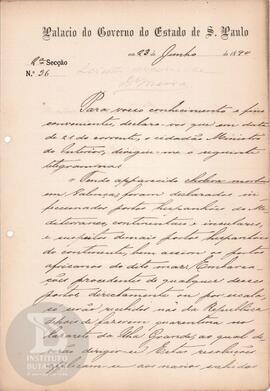 Palacio do Governo do Estado de S. Paulo
em 23 de Junho de 1890
2ª Secção
N.º 36
Para vosso conhecimento e fins
convenientes, declaro-vos que em data
de 21 do corrente, o cidadão Ministro
do Interior, dirigiu-me o seguinte
telegramma:
Tendo apparecido cholera morbus
em Valencia, foram declarados in-
feccionados portos hespanhóes do Me-
diterraneo, continentaes e insulares,
e suspeitos demais portos hespanhóes
do continente, bem assim os portos
africanos do dito mar. Embarca-
ções procedentes de qualquer desses
portos directamente ou por escala,
só serão recebidas nos da Republica
depois de fazerem quarentena no
lazareto da Ilha Grande, ao qual de-
verão dirigir-se. Estas resoluções
aos navios sahidos
INSTITUTO
BUTANTAN